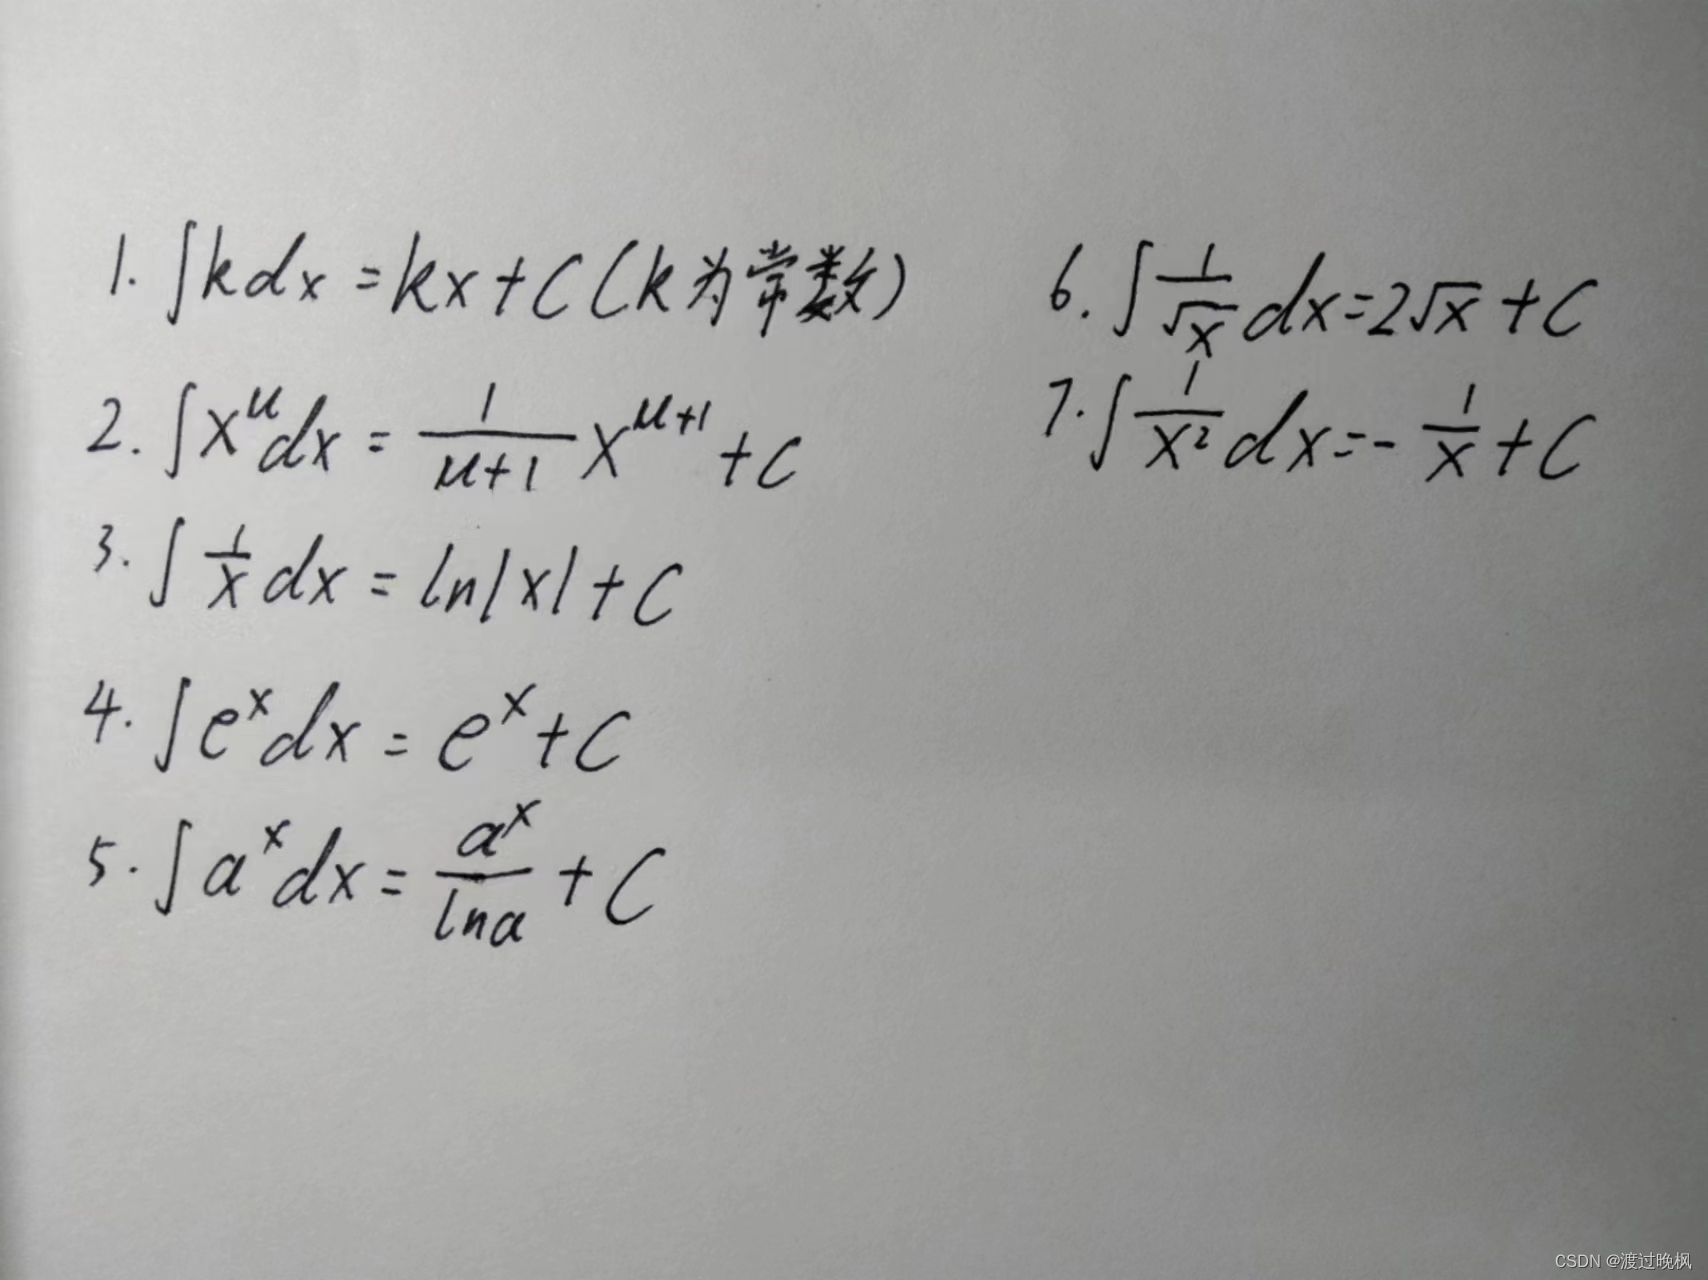 1. ∫kdx = kx + C (k为常数)
2. ∫x^μdx = \frac{1}{μ+1} x^{μ+1} + C
3. ∫\frac{1}{x}dx = ln|x| + C
4. ∫e^xdx = e^x + C
5. ∫a^xdx = \frac{a^x}{lna} + C
6. ∫\frac{1}{\sqrt{x}}dx = 2\sqrt{x} + C
7. ∫\frac{1}{x^2}dx = -\frac{1}{x} + C
CSDN @渡过晚枫